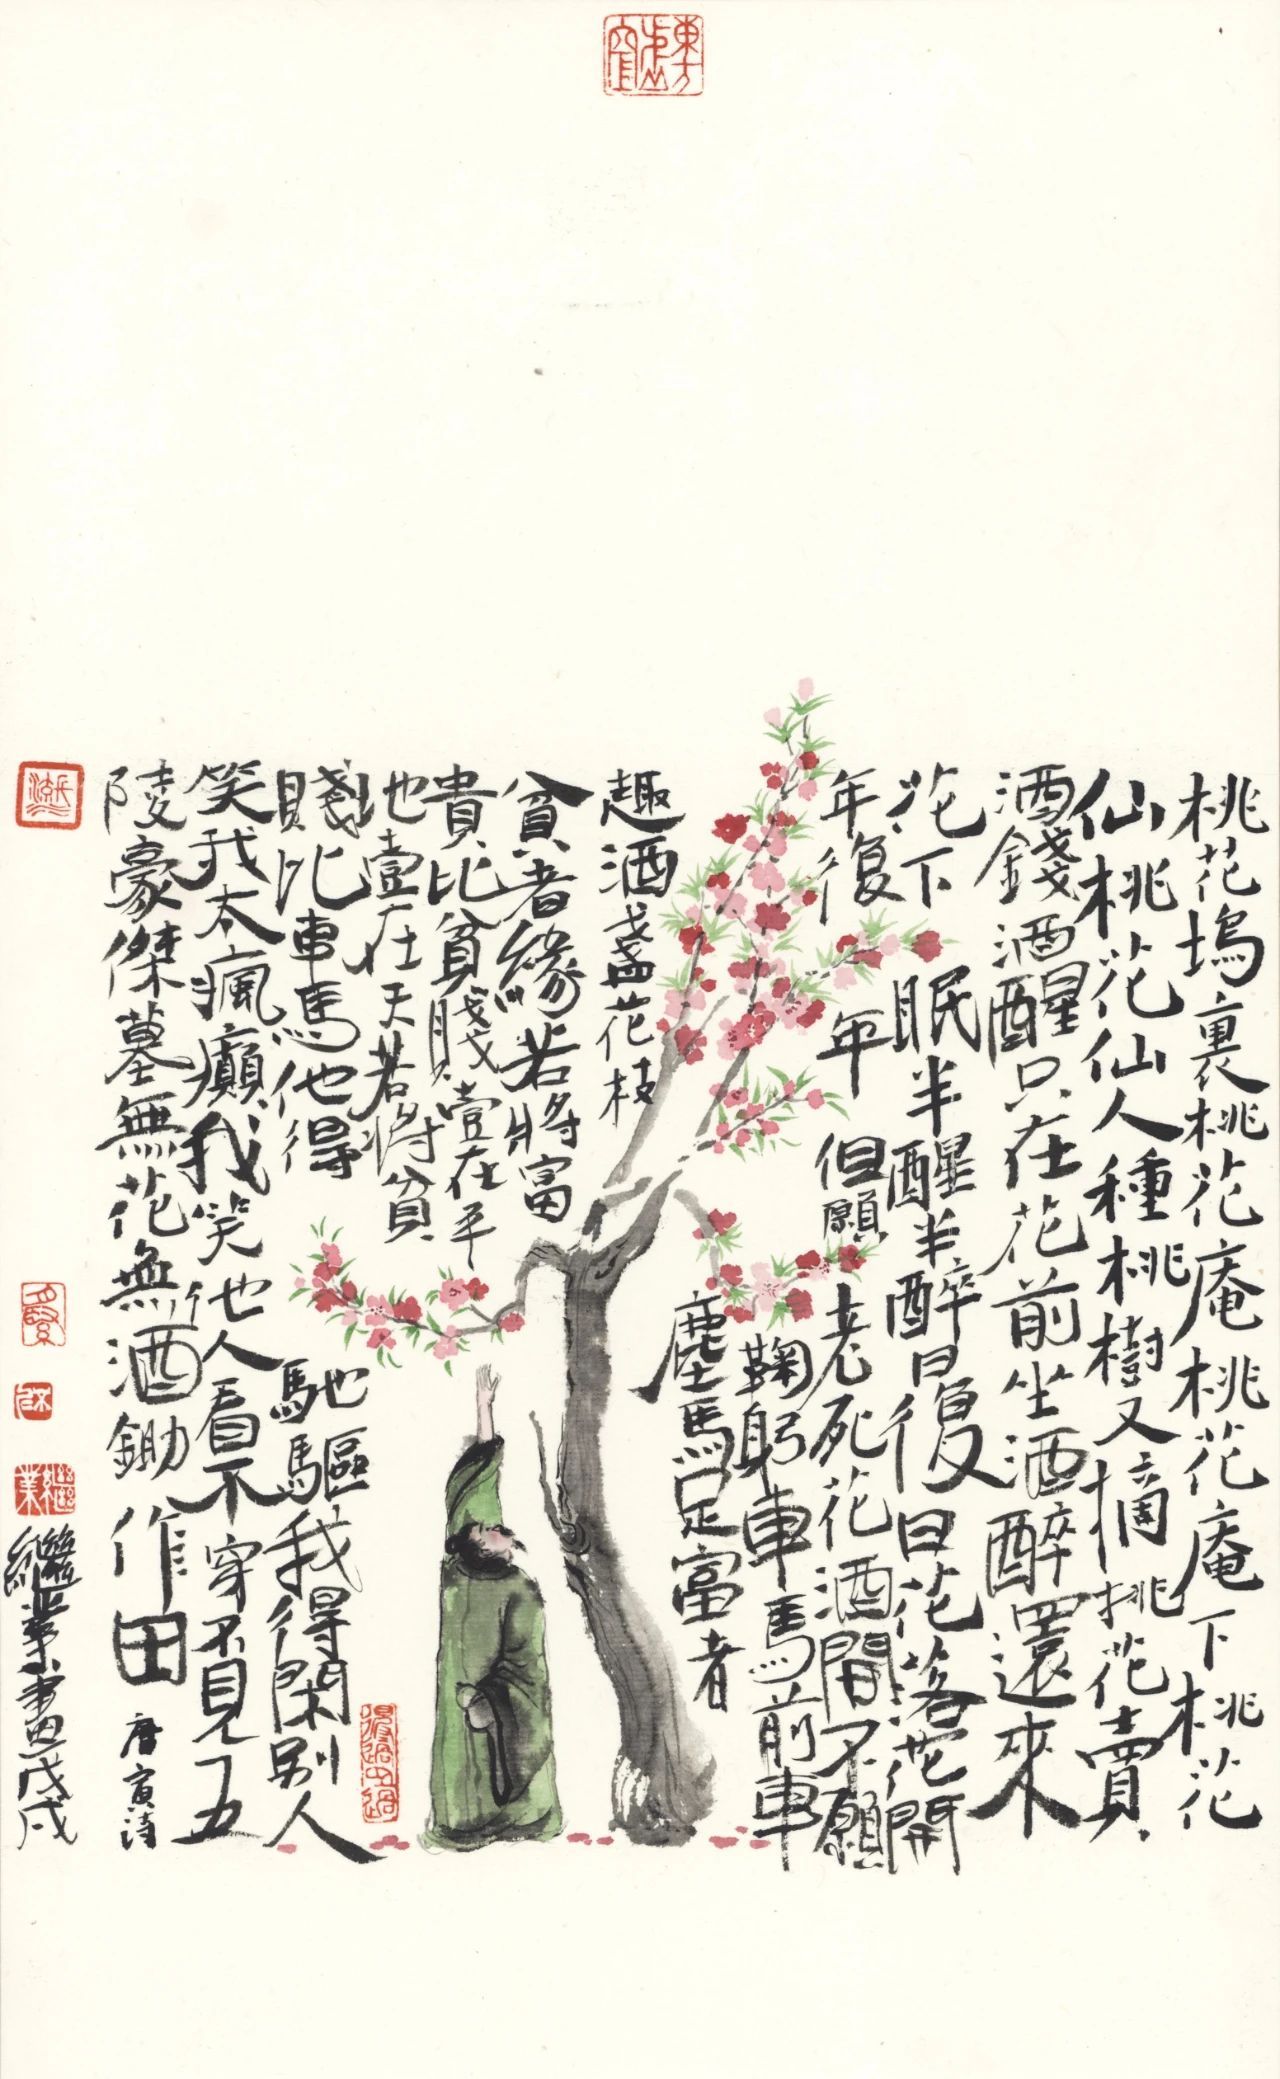 桃花塢裏桃花庵桃花庵下桃花
仙桃花仙人種桃樹又摘桃花賣
酒錢酒醒只在花前坐酒醉還來
花下眠半醒半醉日復日花落花開
年復年但願老死花酒間不願
鞠躬車馬前車
塵馬足富者
趣酒盞花枝
貧者緣若將富
貴比貧賤壹在平
地壹在天若將貧
賤比車馬他得馳驅我得閑別人
笑我太瘋癲我笑他人看不穿不見五
陵豪傑墓無花無酒鋤作田
唐寅詩
繼業畫戊戌
繼業